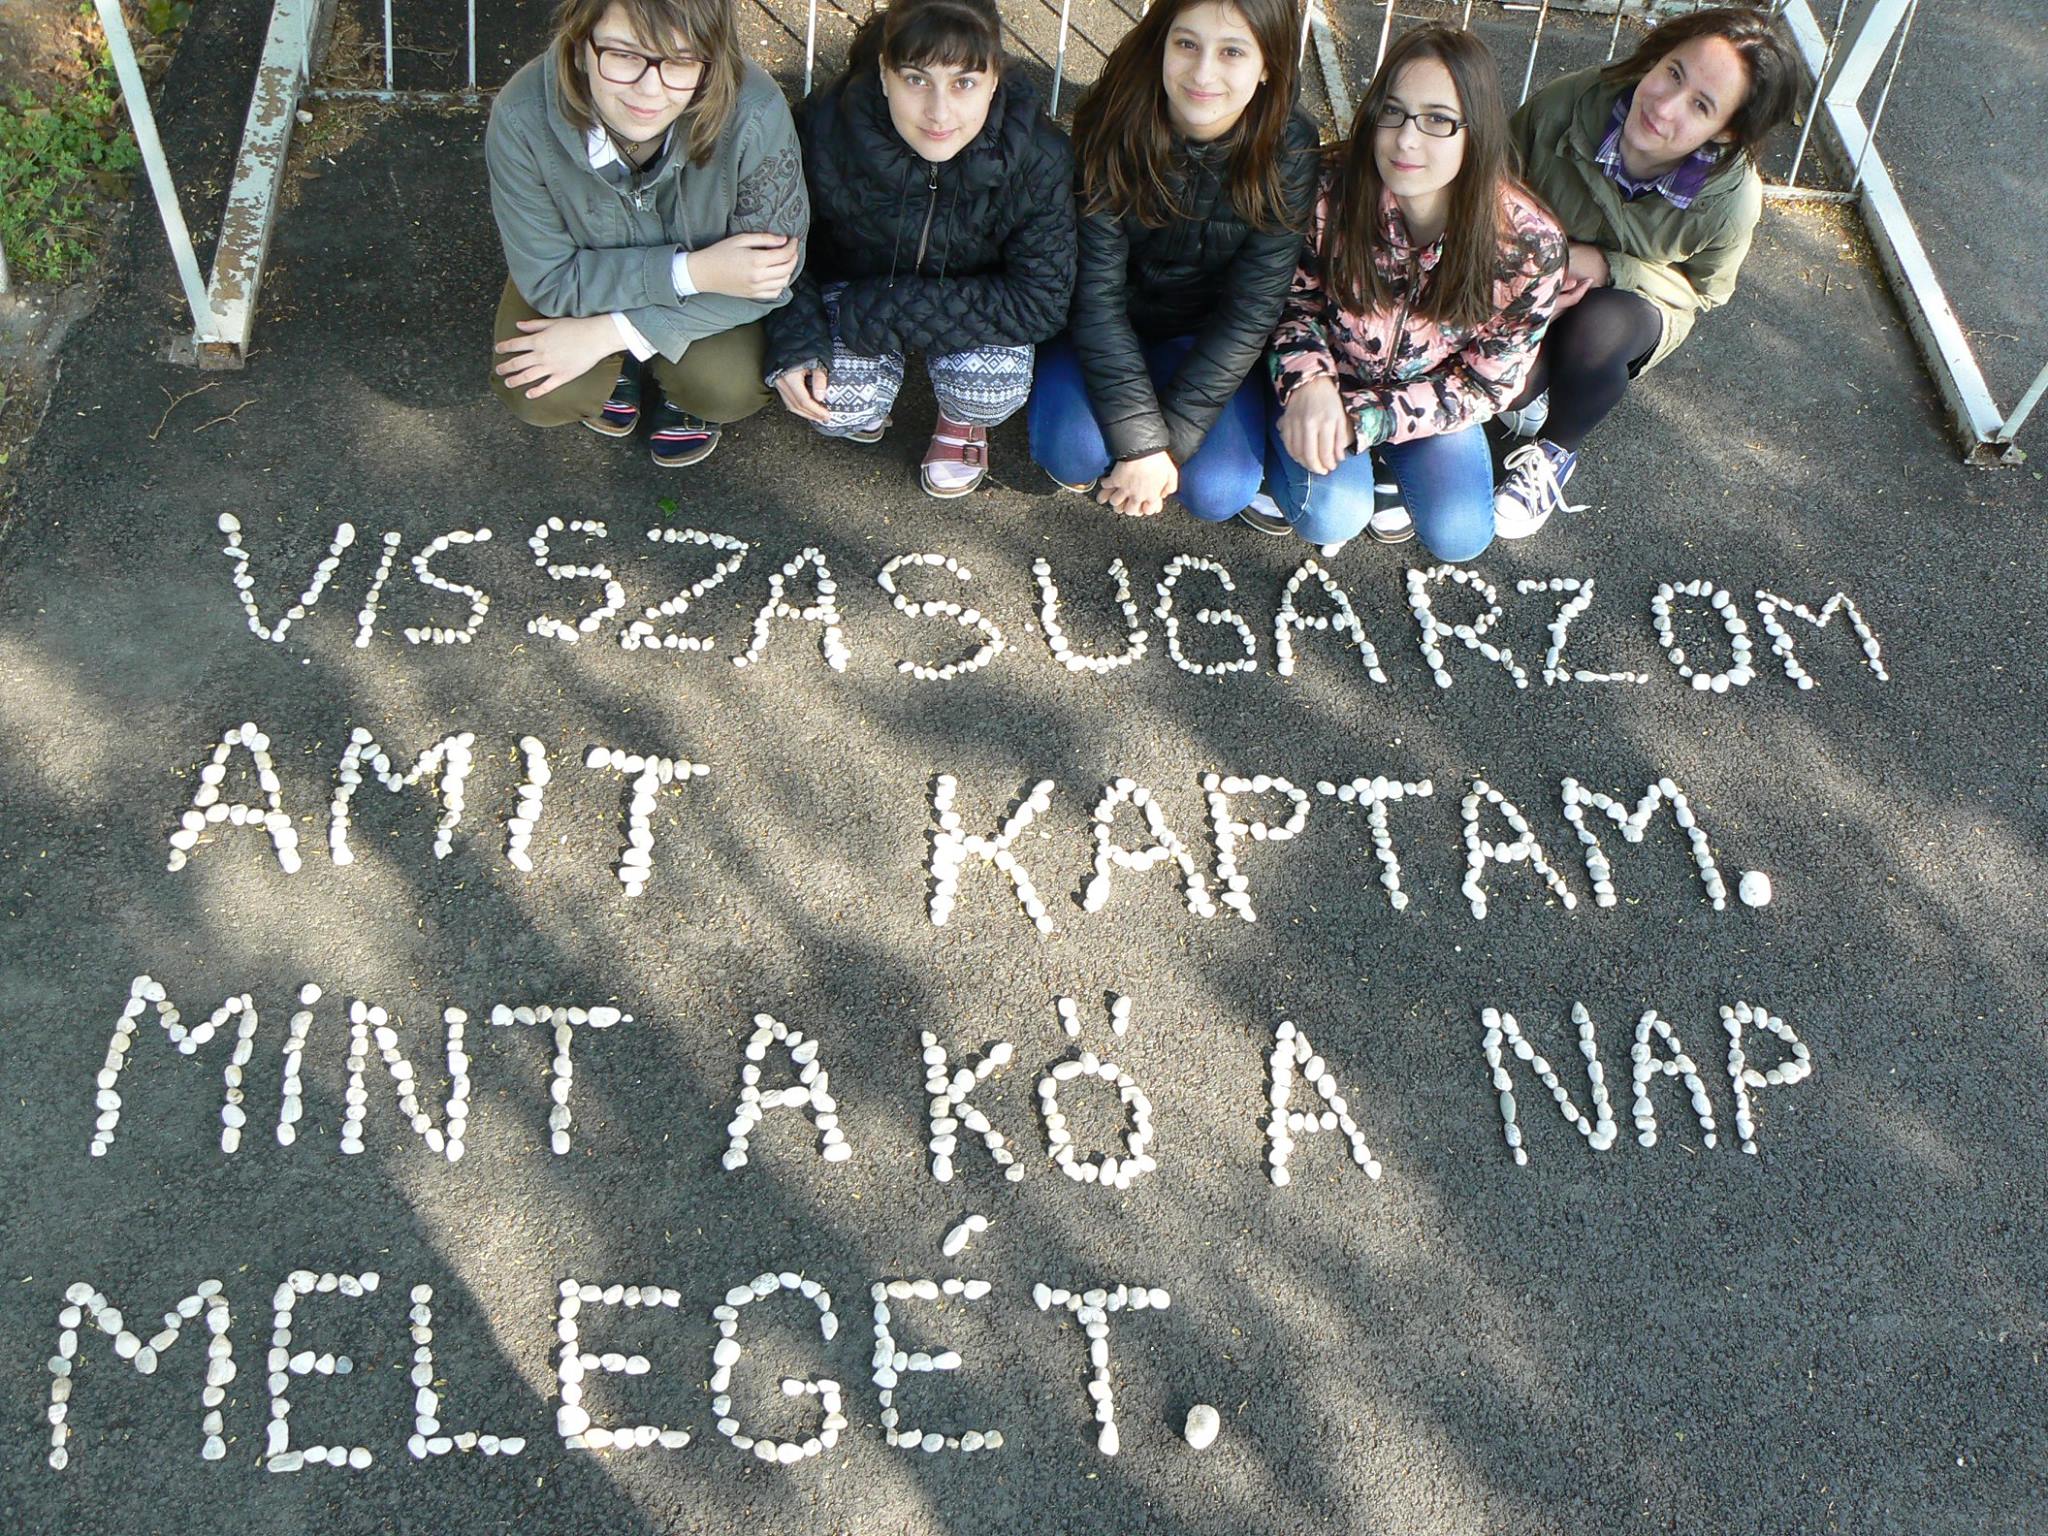 VISSZASUGÁRZOM
AMIT KAPTAM.
MINT A KÖ A NAP
MELEGÉT.